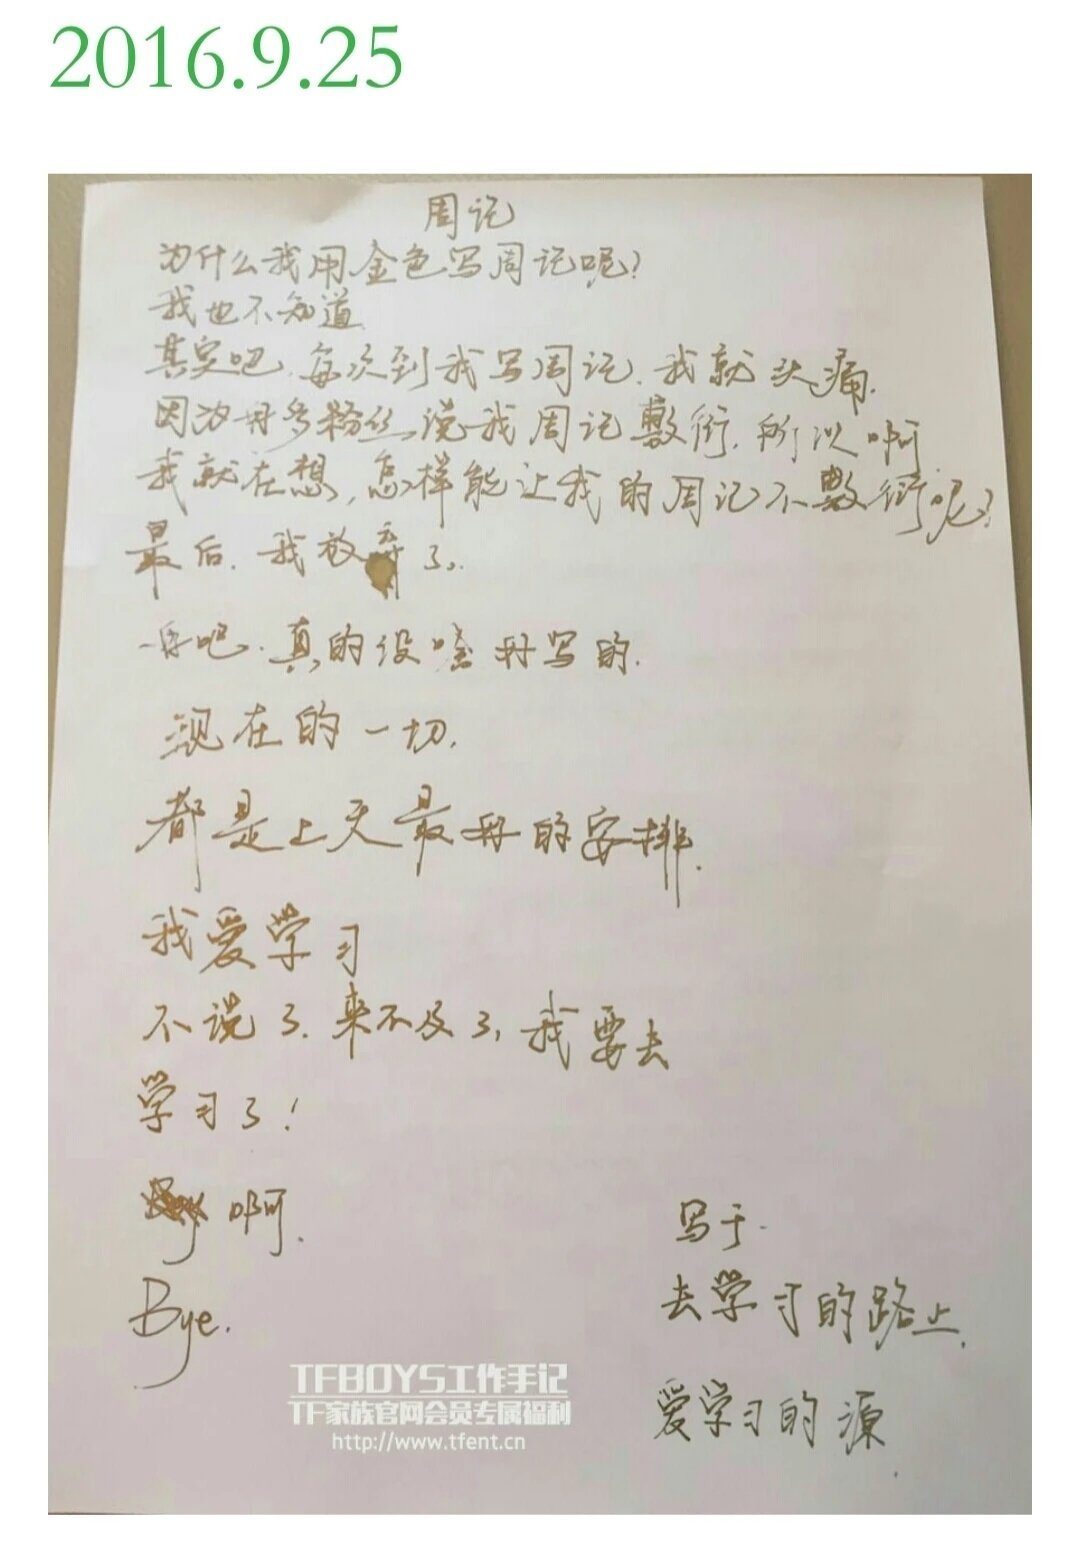 2016.9.25
周记
为什么我用金色写周记呢?
我也不知道.
其实吧,每次到我写周记.我就头痛.
因为好多粉丝说我周记敷衍.所以啊
我就在想,怎样能让我的周记不敷衍呢?
最后.我放弃了..
吧.真的没啥好写的.
现在的一切.
都是上天最好的安排.
我爱学习
不说了.来不及了,我要去
学习了!
啊.
Bye.
写于.
去学习的路上.
爱学习的源.
TFBOYS工作手记
TF家族官网会员专属福利
http://www.tfent.cn